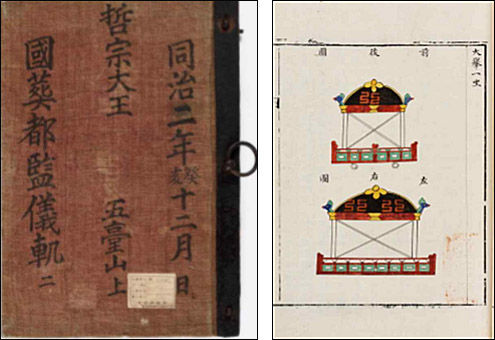 同治二年癸亥十二月 日
哲宗大王 五臺山上
國葬都監儀軌 二
大轝一
前後圖
左右圖